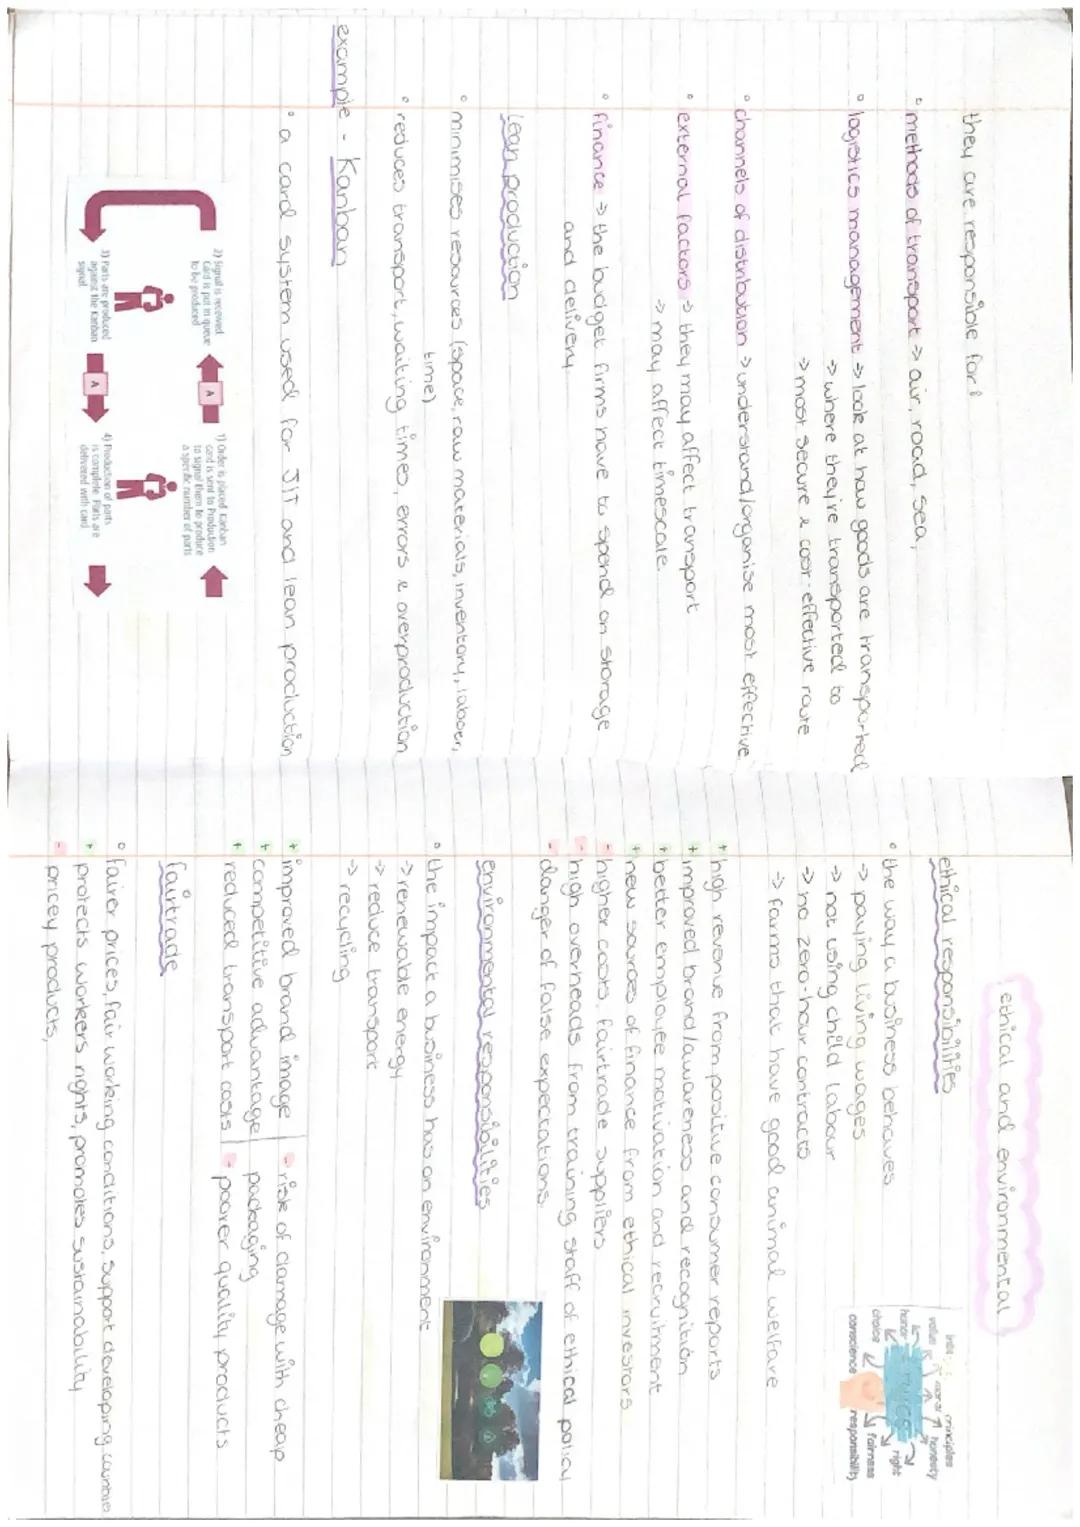 they are responsible for:
methods of transport → air, road, sea,
logistics management → look at how goods are transported
→ where they're transported to
→ most secure & cost-effective route
channels of distribution → understand/organise most effective
external factors → they may affect transport
→ may affect timescale.
finance → the budget firms have to spend on storage
and delivery
lean production
minimises resources (space, raw materials, inventory, labour,
time)
reduces transport, waiting times, errors & overproduction
example - Kanban
a card system used for JIT and lean production
2) Signal is received
card is put in queue
to be produced
A
1) Order is placed. Kanban
card is sent to Production
to signal them to produce
a specific number of parts
3) Parts are produced
against the Kanban
signal
A
4) Production of parts
is complete. Parts are
delivered with card
ethical and environmental
ethical responsibilities
the way a business behaves
→ paying living wages
→ not using child labour
→ no zero-hour contracts
→ farms that have good animal welfare
value
moral
principles
honesty
honor
right
choice
fairness
conscience
responsibility
+ high revenue from positive consumer reports
+ improved brand/awareness and recognition
+ better employee motivation and recruitment
+ new sources of finance from ethical investors
- higher costs, fairtrade suppliers
- high overheads from training staff of ethical policy
- danger of false expectations.
environmental responsibilities
the impact a business has on environment
→ renewable energy
→ reduce transport
→ recycling
+ improved brand image
+ competitive advantage
+ reduced transport costs
- risk of damage with cheap
packaging
- poorer quality products
fairtrade
fairer prices, fair working conditions, support developing countries
+ protects workers rights, promotes sustainability
- pricey products,